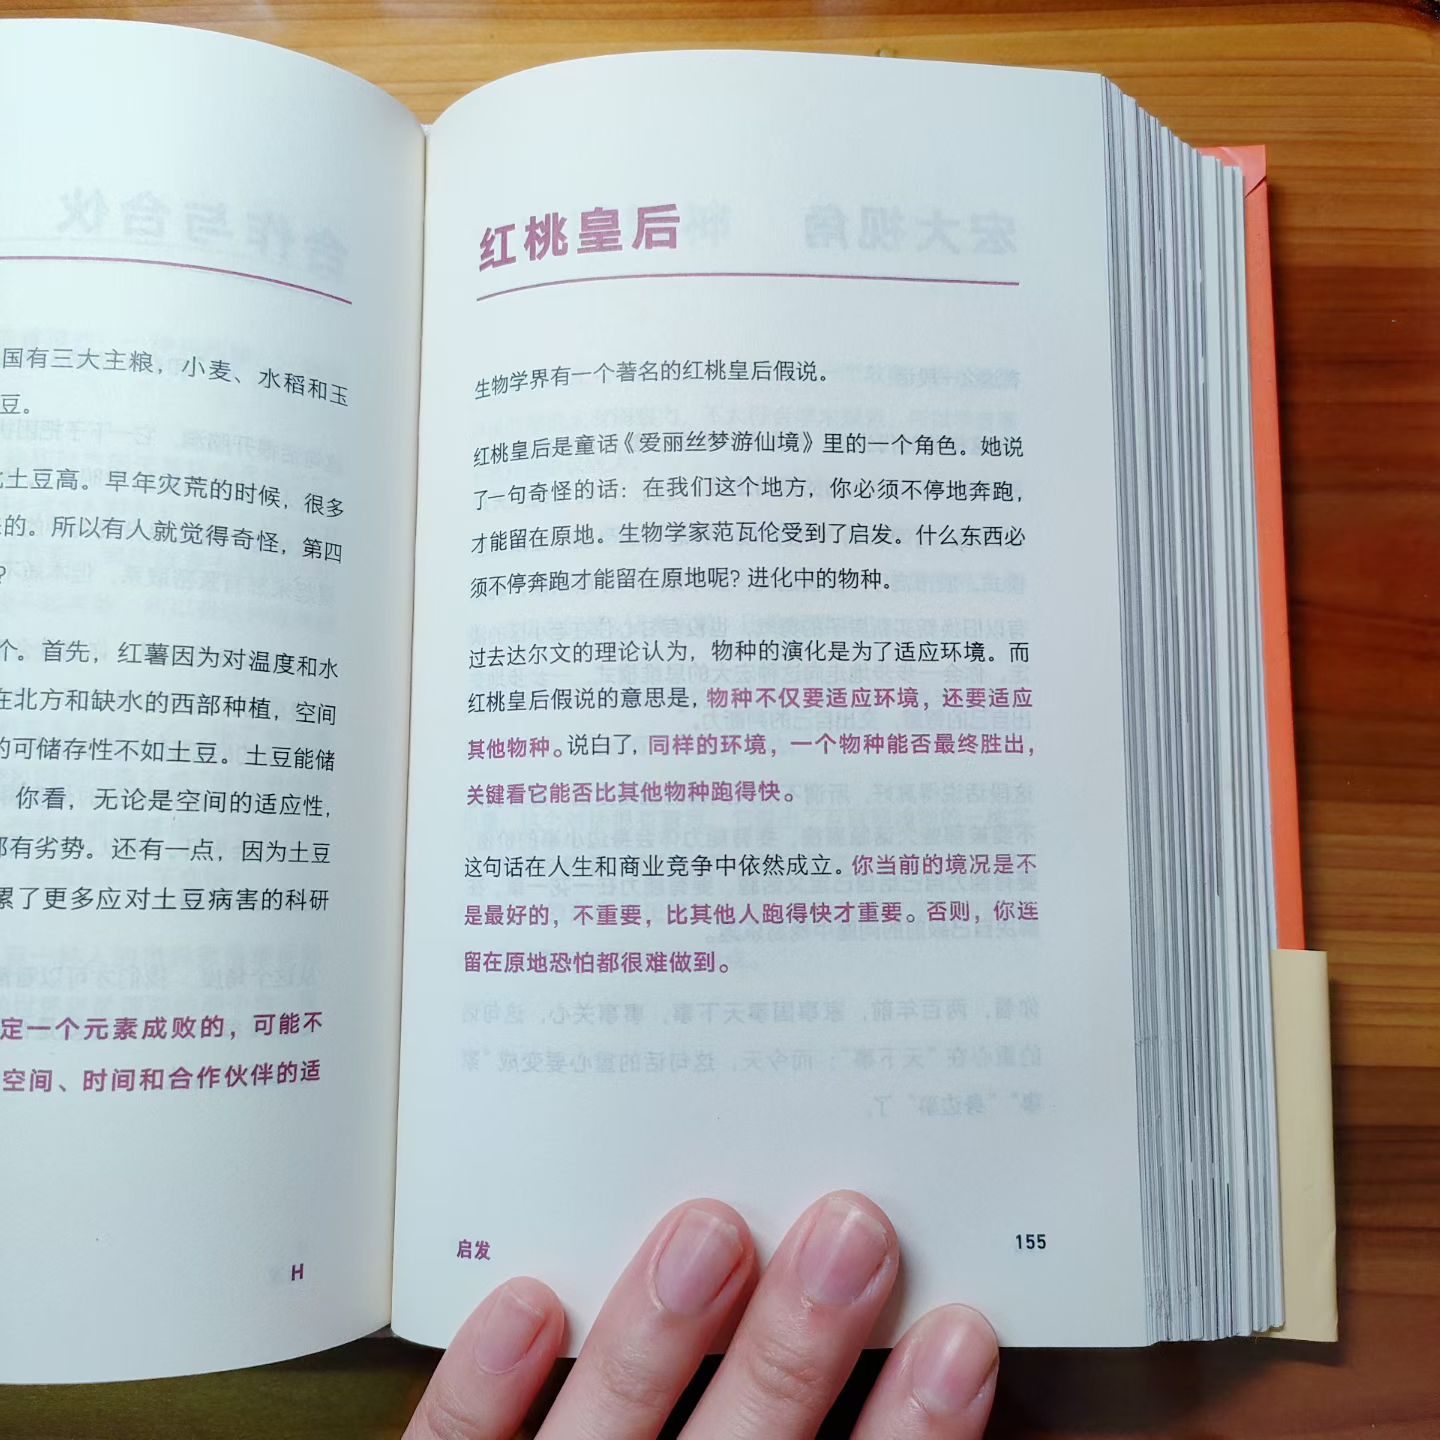 国有三大主粮，小麦、水稻和玉
豆。
土豆高。早年灾荒的时候，很多
的。所以有人就觉得奇怪，第四
？
个。首先，红薯因为对温度和水
在北方和缺水的西部种植，空间
的可储存性不如土豆。土豆能储
你看，无论是空间的适应性，
都有劣势。还有一点，因为土豆
累了更多应对土豆病害的科研
定一个元素成败的，可能不
空间、时间和合作伙伴的适
H
红桃皇后
生物学界有一个著名的红桃皇后假说。
红桃皇后是童话《爱丽丝梦游仙境》里的一个角色。她说
了一句奇怪的话：在我们这个地方，你必须不停地奔跑，
才能留在原地。生物学家范瓦伦受到了启发。什么东西必
须不停奔跑才能留在原地呢？进化中的物种。
过去达尔文的理论认为，物种的演化是为了适应环境。而
红桃皇后假说的意思是，物种不仅要适应环境，还要适应
其他物种。说白了，同样的环境，一个物种能否最终胜出，
关键看它能否比其他物种跑得快。
这句话在人生和商业竞争中依然成立。你当前的境况是不
是最好的，不重要，比其他人跑得快才重要。否则，你连
留在原地恐怕都很难做到。
启发
155